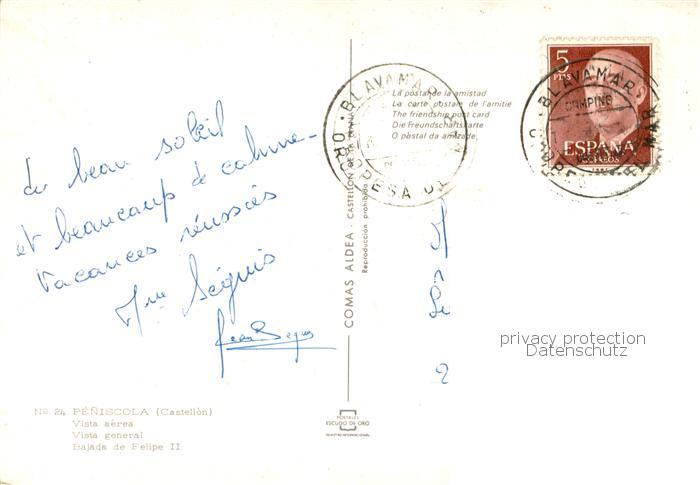 du beau soleil
et beaucoup de calme -
Vacances réussies
Mme Séguis
Jean Seguis
Nº 24 PEÑISCOLA (Castellón)
Vista aérea
Vista general
Bajada de Felipe II
COMAS ALDEA - CASTELLON DE LA PLANA
Reproducción prohibida
POSTALES
ESCUDO DE ORO
REGISTRO INTERNACIONAL
La postal de la amistad
La carte postale de l'amitié
The friendship post card
Die Freundschaftskarte
O postal da amizade
BLAVAMAR
OROPESA DEL MAR
5
PTAS
ESPAÑA
CORREOS
BLAVAMAR
CAMPING
OROPESA DEL MAR
privacy protection
Datenschutz